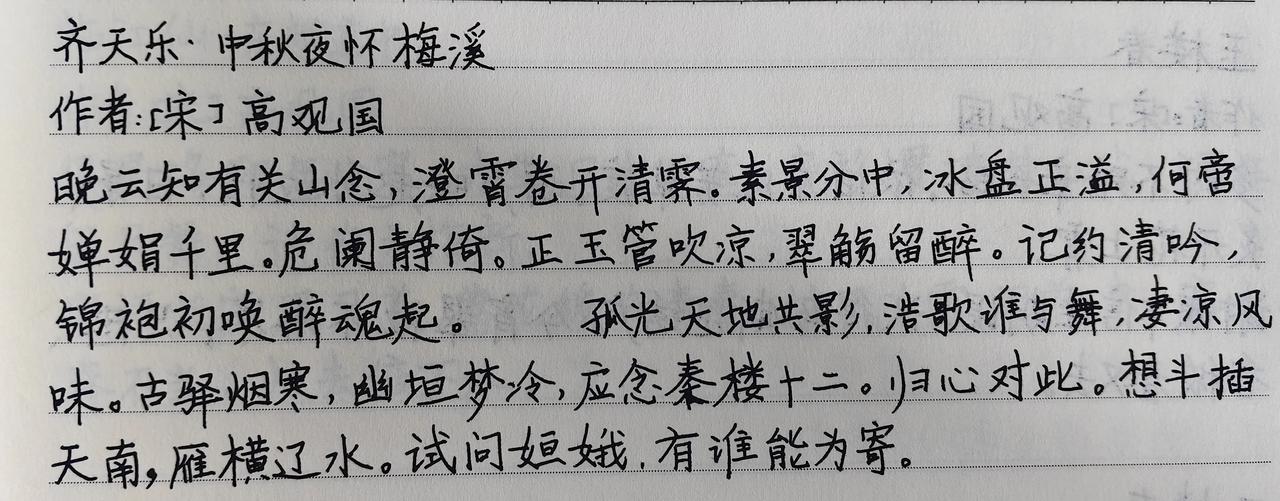 齐天乐·中秋夜怀梅溪
作者:[宋]高观国
晚云知有关山念,澄霄卷开清霁。素景分中,冰盘正溢,何啻
婵娟千里。危阑静倚。正玉管吹凉,翠觞留醉。记约清吟,
锦袍初唤醉魂起。 孤光天地共影,浩歌谁与舞,凄凉风
味。古驿烟寒,幽垣梦冷,应念秦楼十二。归心对此。想斗插
天南,雁横辽水。试问姮娥,有谁能为寄。